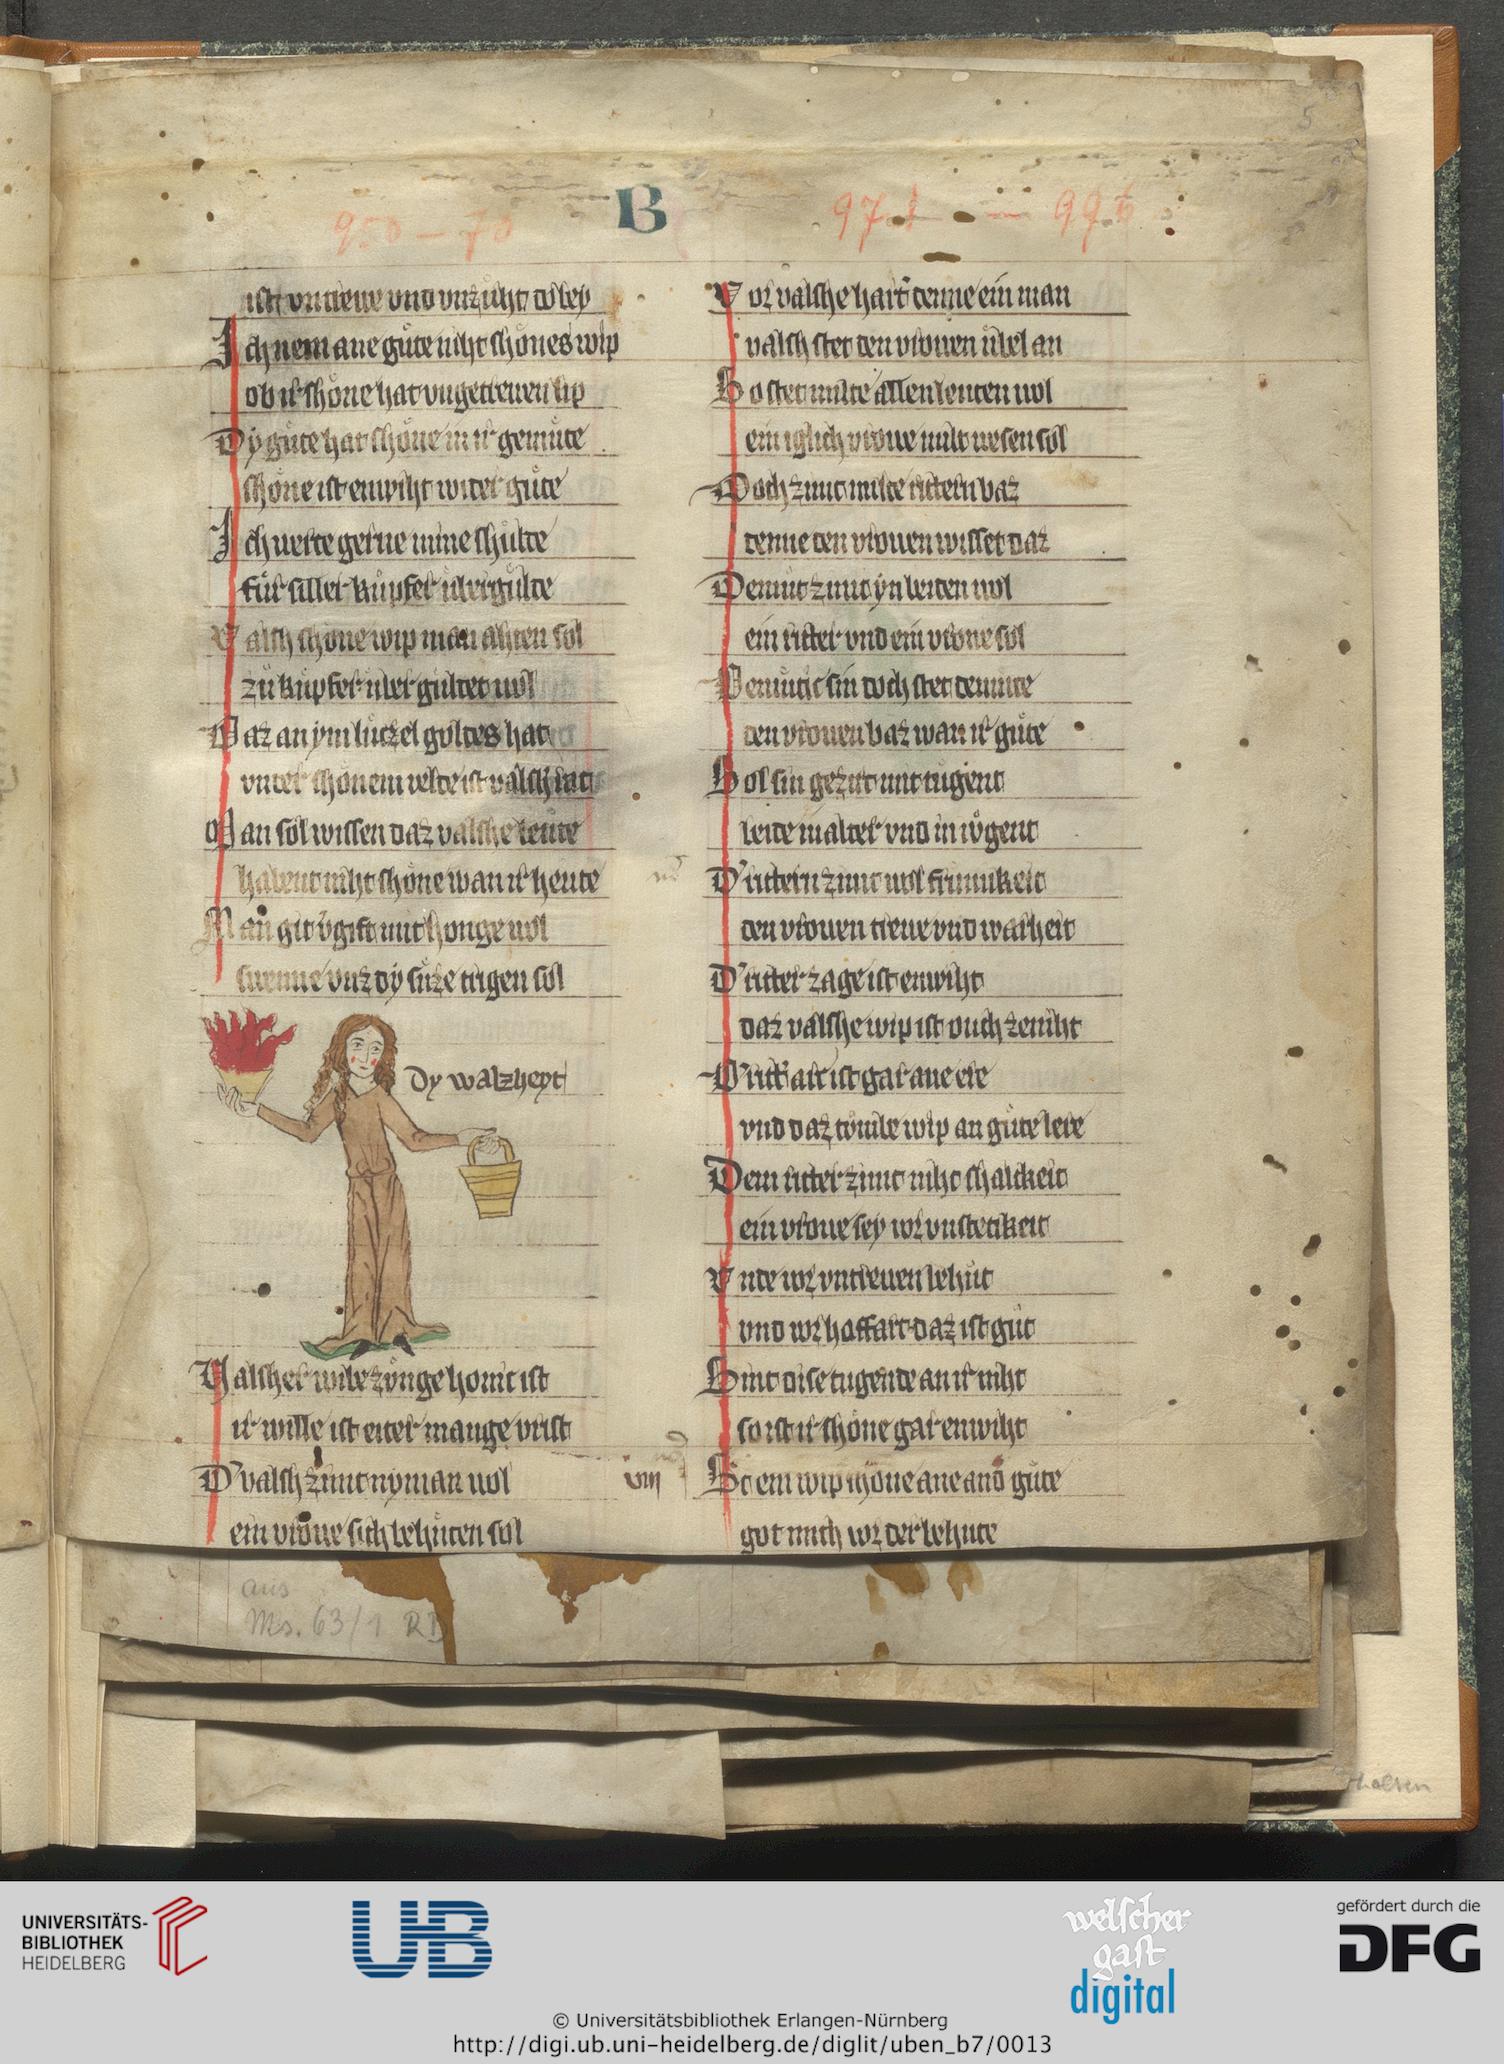 5
950 – 70
B
971 — 996
ist vntreue vnd vnzuht do bey
Ich nem ane güte niht schönes wip
ob ir schöne hat vngetreuen lip
Dy güte hat schöne in ir gemüte
schöne ist enwiht wider güte
Ich uerte gerne mine schulte
für silber kupfer übergulte
Valsch schöne wip man ahten sol
zü kupfer uber gultet uol
Daz an ym lützel goltes hat
vnter schönem velde ist valsch rat
Man sol wissen daz valsche leute
habent niht schöne wan ir heute
Man git vgift mit honge uol
swenne vnz dy süze trigen sol
dy walzheyt
Valscher wibe zunge honic ist
ir wille ist eiter mange vrist
D' valsch zimt nyman uol
ein vrowe sich behüten sol
Vor valsche hart denne ein man
valsch stet den vrouen übel an
So stet milte allen leuten uol
ein iglich vrowe milt uesen sol
Doch zimt milte rittern baz
denne den vrouen wisset daz
Demüt zimt yn beiden uol
ein ritter vnd ein vrowe sol
Demütic sin doch stet demüte
den vrouen baz wan ir güte
Sol sin gezirt mit tugent
beide in alter vnd in iugent
D' rittern zimt uol frumkeit
den vrouen treue vnd warheit
D' ritter zage ist enwiht
daz valsche wip ist ouch zeniht
D' ritt' arc ist gar ane ere
vnd daz wip an güte lere
Dem ritter zimt niht schalckeit
ein vrowe sey vor vnstetikeit
Vnte vor vntreuen behüt
vnd vor hoffart daz ist güt
Sint dise tugende an ir niht
so ist ir schöne gar enwiht
viij
St ein wip schöne ane and' güte
got mich vor der behüte
aus
Ms. 63/1
UNIVERSITÄTS-
BIBLIOTHEK
HEIDELBERG
UB
welscher
gast
digital
gefördert durch die
DFG
© Universitätsbibliothek Erlangen-Nürnberg
http://digi.ub.uni-heidelberg.de/diglit/uben_b7/0013